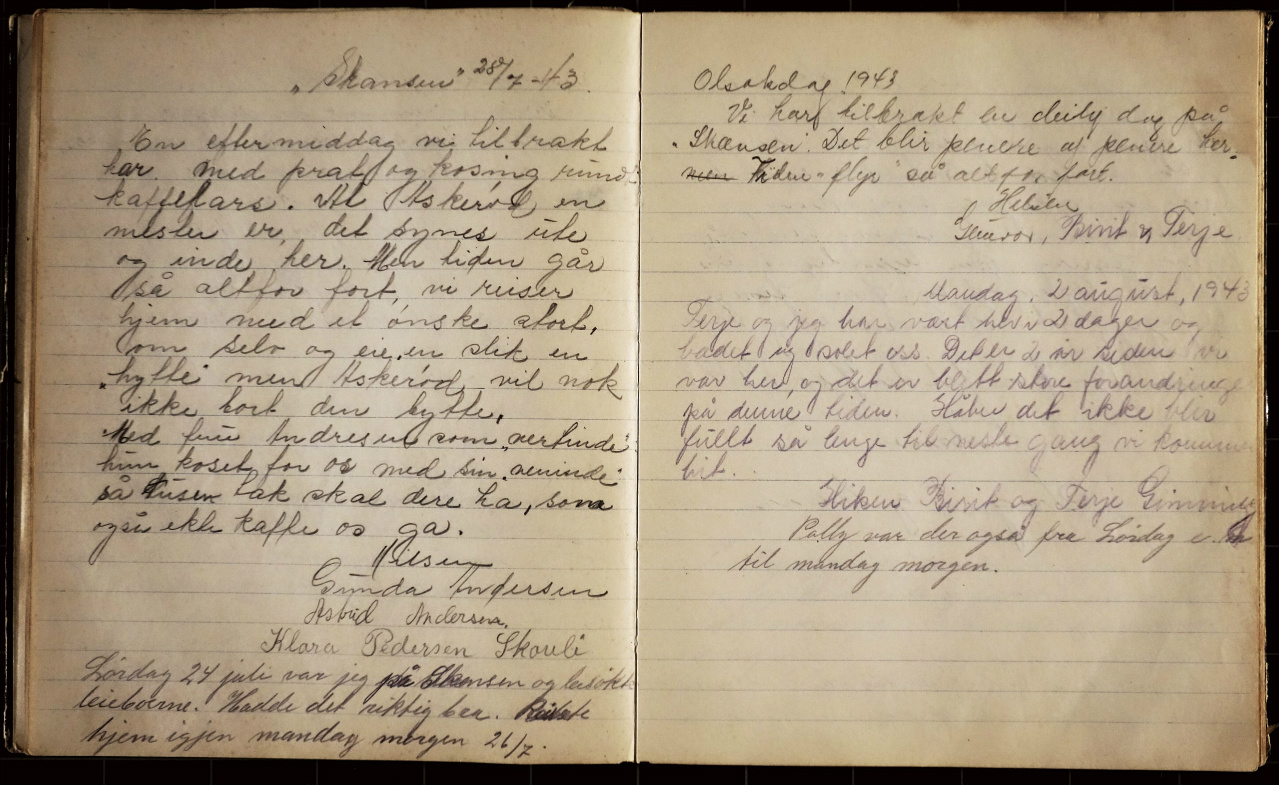 „Skansen" 28/7-43.
En eftermiddag vi tilbrakt
har. med prat og kosing rundt
kaffelars. At Askerød en
mester er, det synes ute
og inde her. Men tiden går
så altfor fort, vi reiser
hjem med et ønske stort,
om selv og eie en slik en
„hytte" men Askerød vil nok
ikke bort den bytte,
Med frue Andresen som „vertinde"
hun koset for os med sin „veninde"
så tusen tak skal dere ha, som
også ekte kaffe os ga.
Hilsen
Gunda Andersen
Astrid Andersen.
Klara Pedersen Skouli
Lørdag 24 juli var jeg på Skansen og besøkte
leieboerne. Hadde det riktig bra. Reiste
hjem igjen mandag morgen 26/7.
Olsokdag 1943
Vi har tilbrakt en deilig dag på
„Skansen". Det blir penere og penere her.
men Tiden „flyr" så altfor fort.
Hilsen
Gunvor, Birit og Terje
Mandag. 2 august, 1943
Terje og jeg har vært her i 2 dager og
badet og solet oss. Det er 2 år siden vi
var her, og det er blitt store forandringer
på denne tiden. Håber det ikke blir
fullt så lenge til neste gang vi kommer
hit.
Hilsen Birit og Terje
Polly var der også fra Lørdag e.
til mandag morgen.